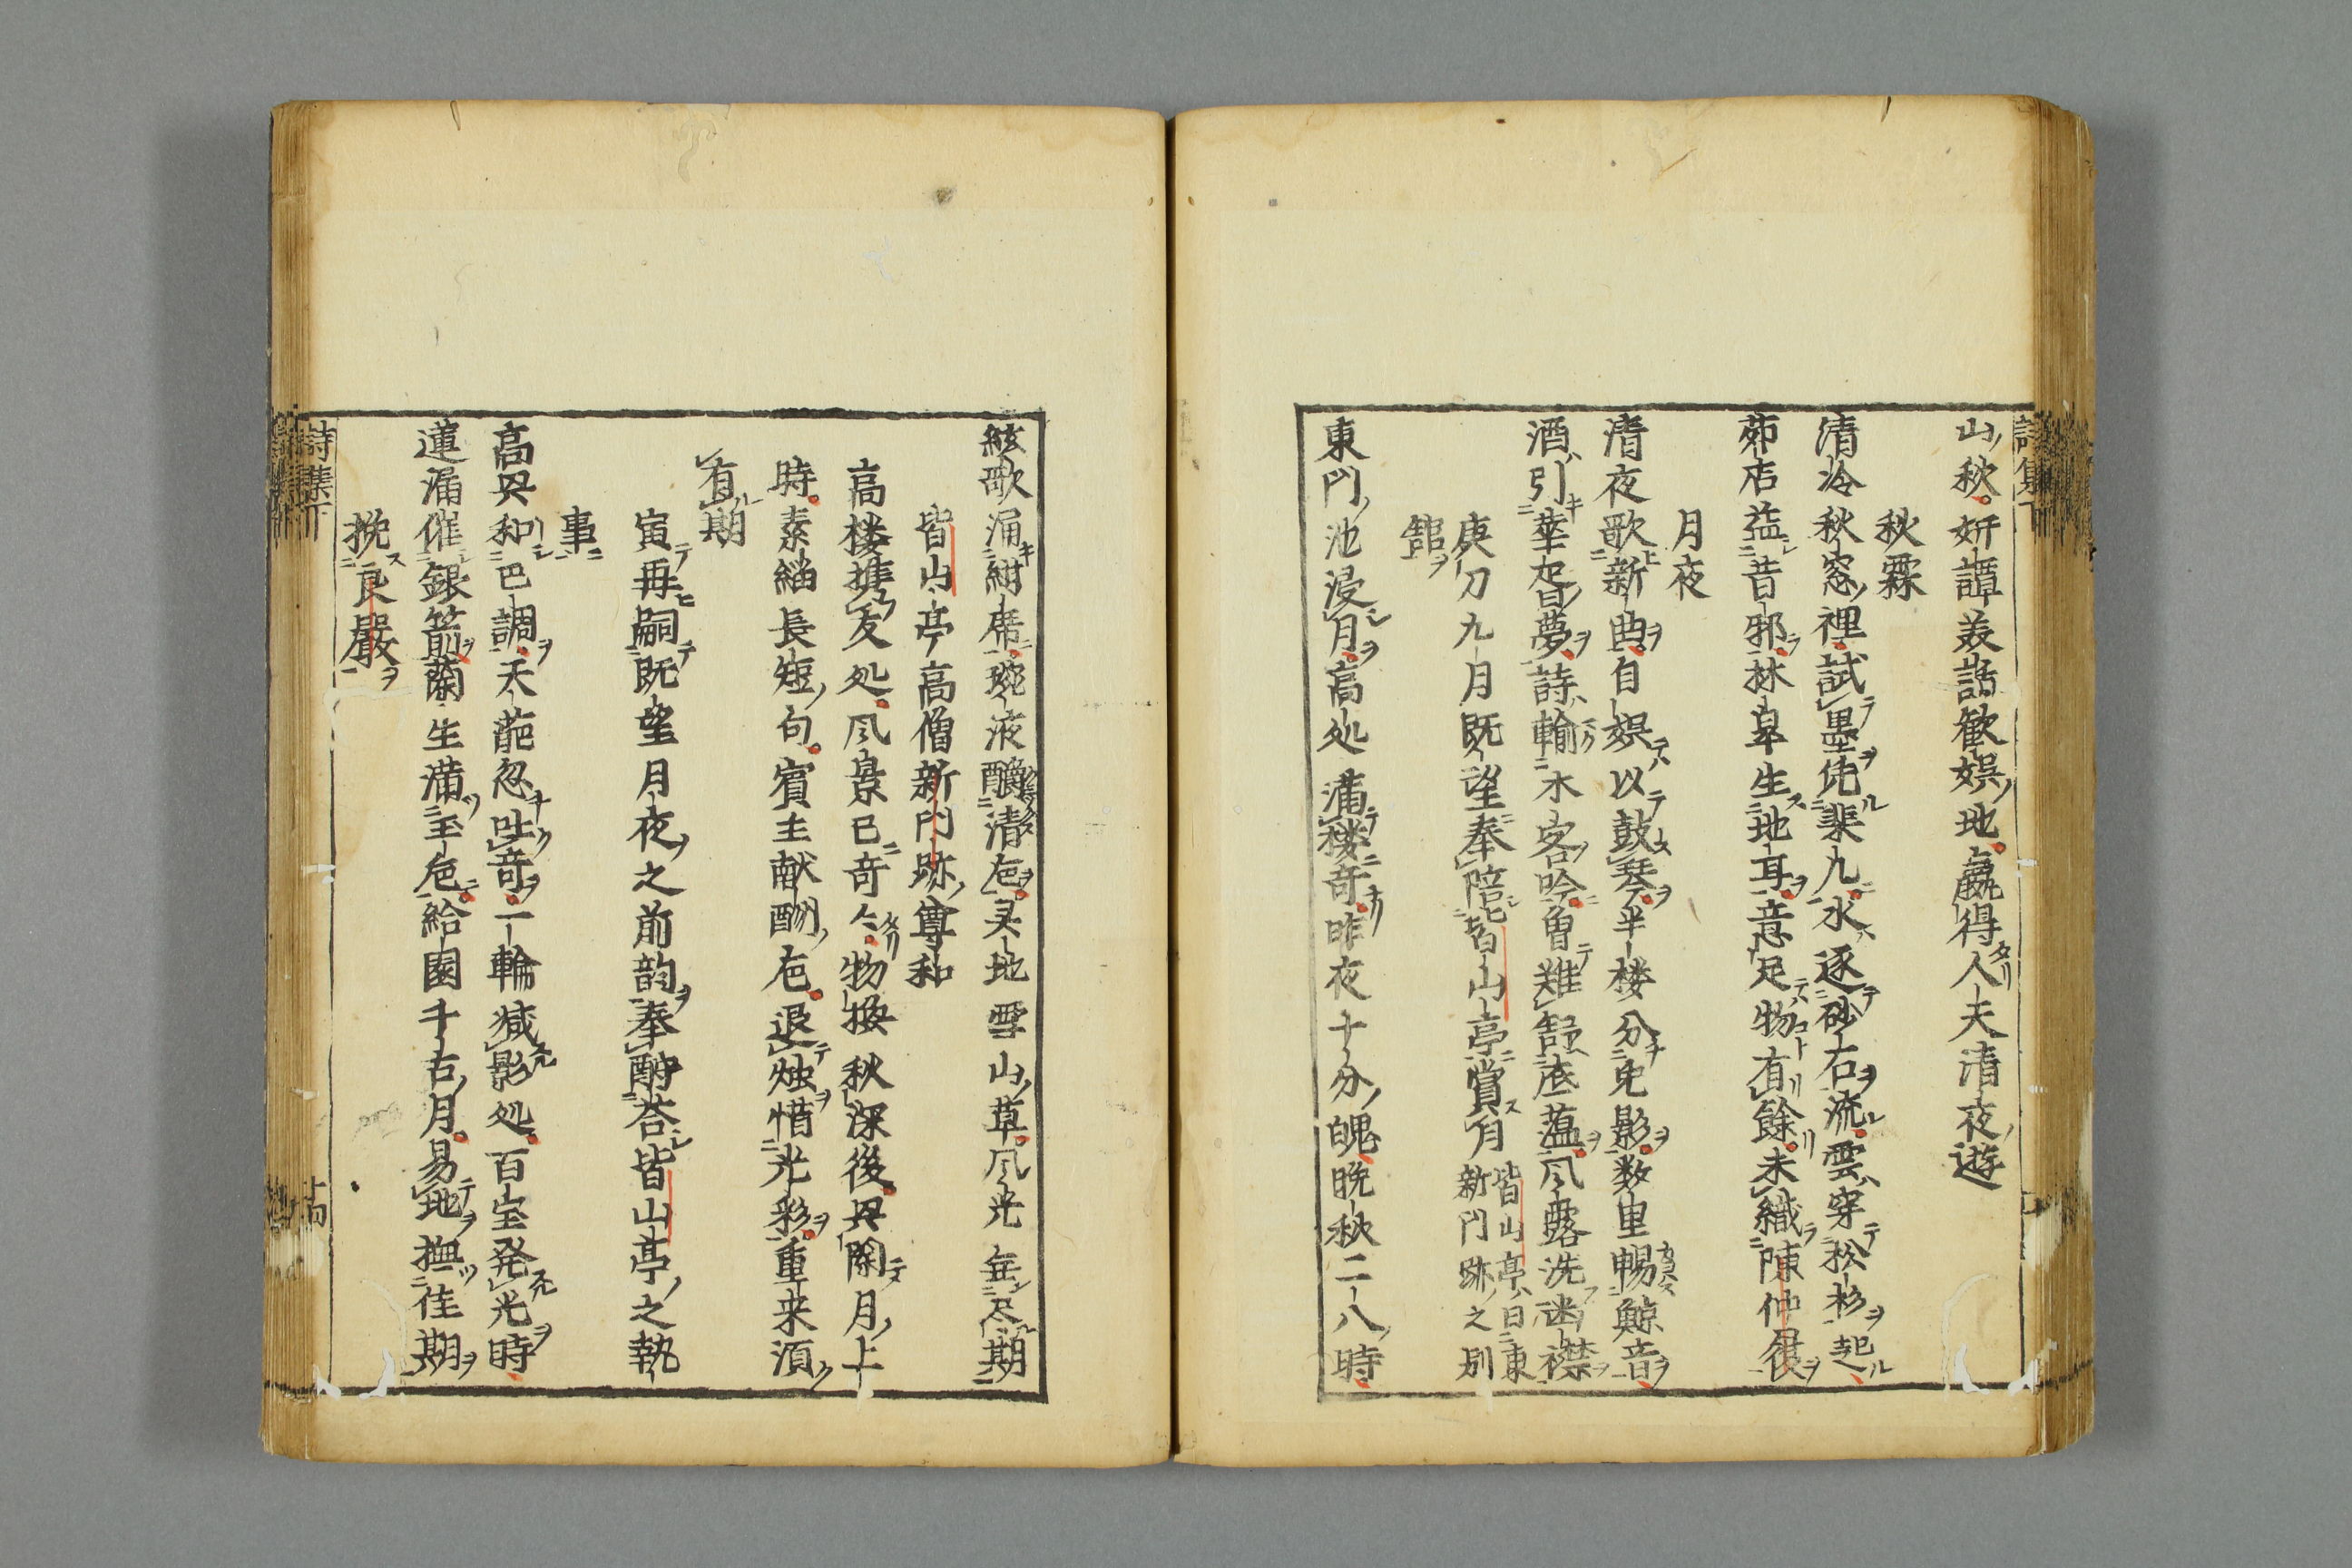 山秋妍譚美話歓娯地贏得人天清夜遊
秋霖
清冷秋窓裡試墨凭棐几水逐砂石流雲穿松杉起
茆店益昔邪林皐生地耳意足物有餘未織陳仲屨
月夜
清夜歌新曲自娯以鼓琴半楼分兎影数里暢鯨音
酒引華胥夢詩輸木客吟曽難舒底蘊風露洗幽襟
庚刀九月既望奉陪皆山亭賞月
皆山亭日東
新門跡之別
舘
東門池浸月高処満楼奇昨夜十分魄晩秋二八時
絃歌涌紺席琬液釂清卮灵地雪山草風光無尽期
皆山亭高僧新門跡尊和
高楼携友処風景已奇今物換秋深後興闌月上
時素緇長短句賓主献酬卮退燭惜光彩重来須
有期
寅再嗣既望月夜之前韵奉酧荅皆山亭之執
事
高興和巴調天葩忽吐奇一輪減影処百宝発光時
蓮漏催銀箭蘭生満玉卮給園千古月易地撫佳期
挽良嚴
詩集下
詩集下